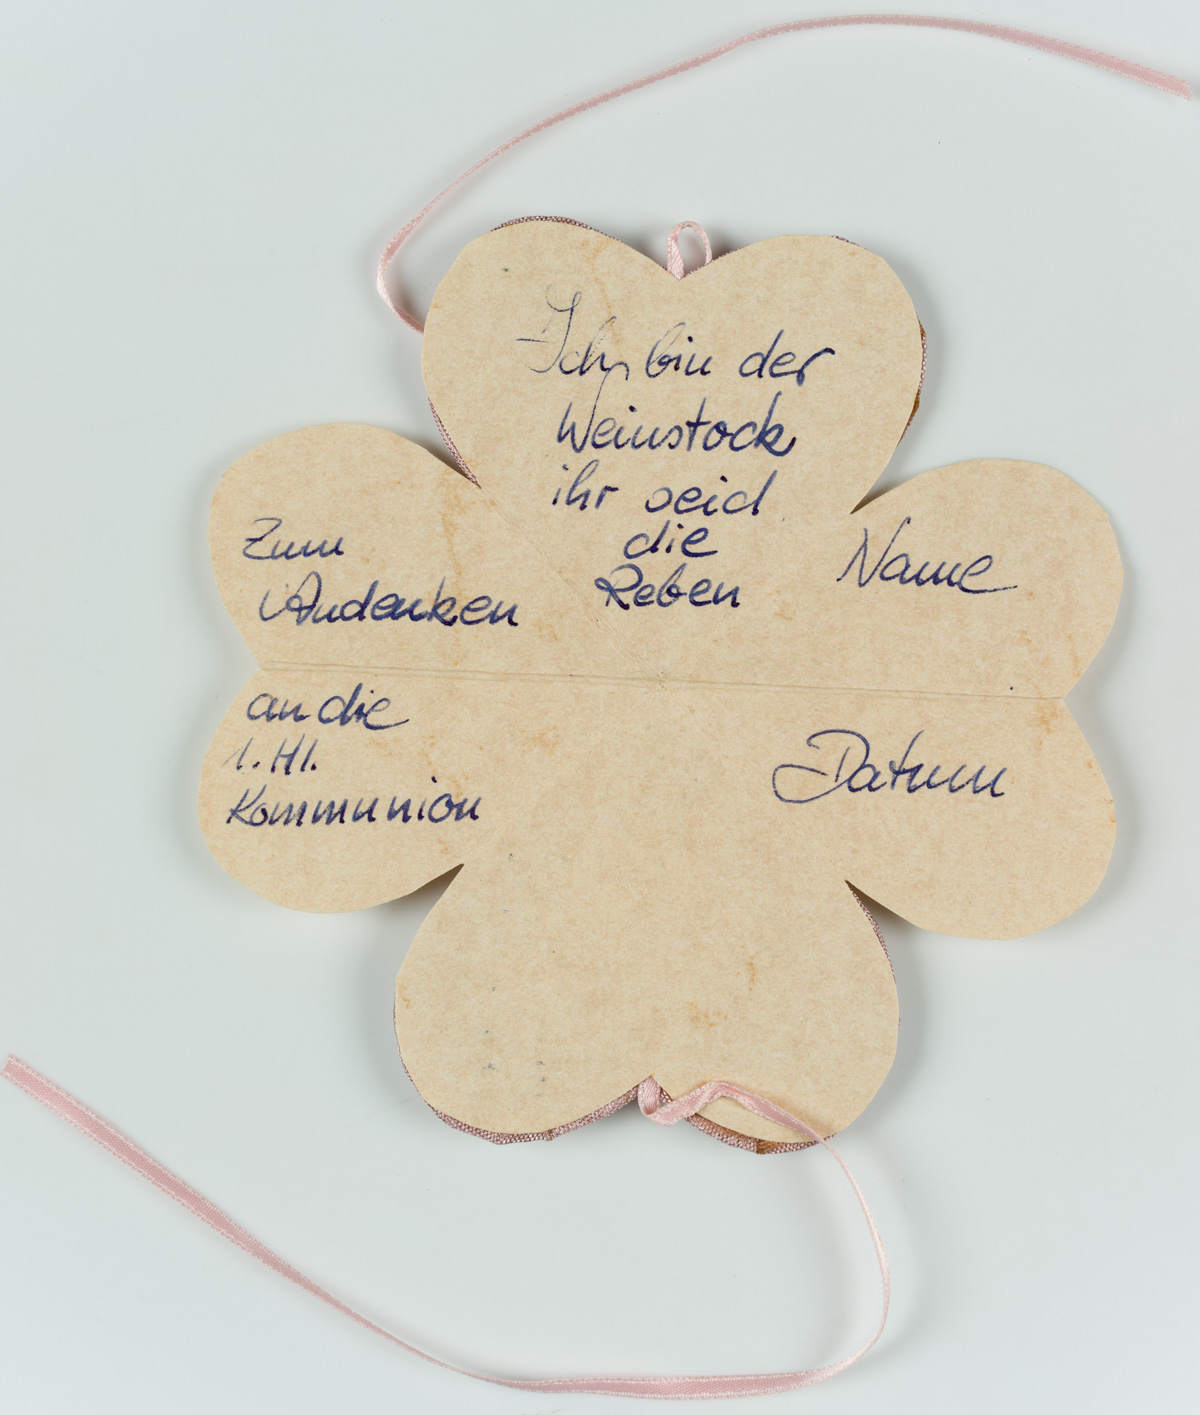 Ich bin der
Weinstock
ihr seid
die
Reben
Zum
Andenken
an die
1. Hl.
Kommunion
Name
Datum